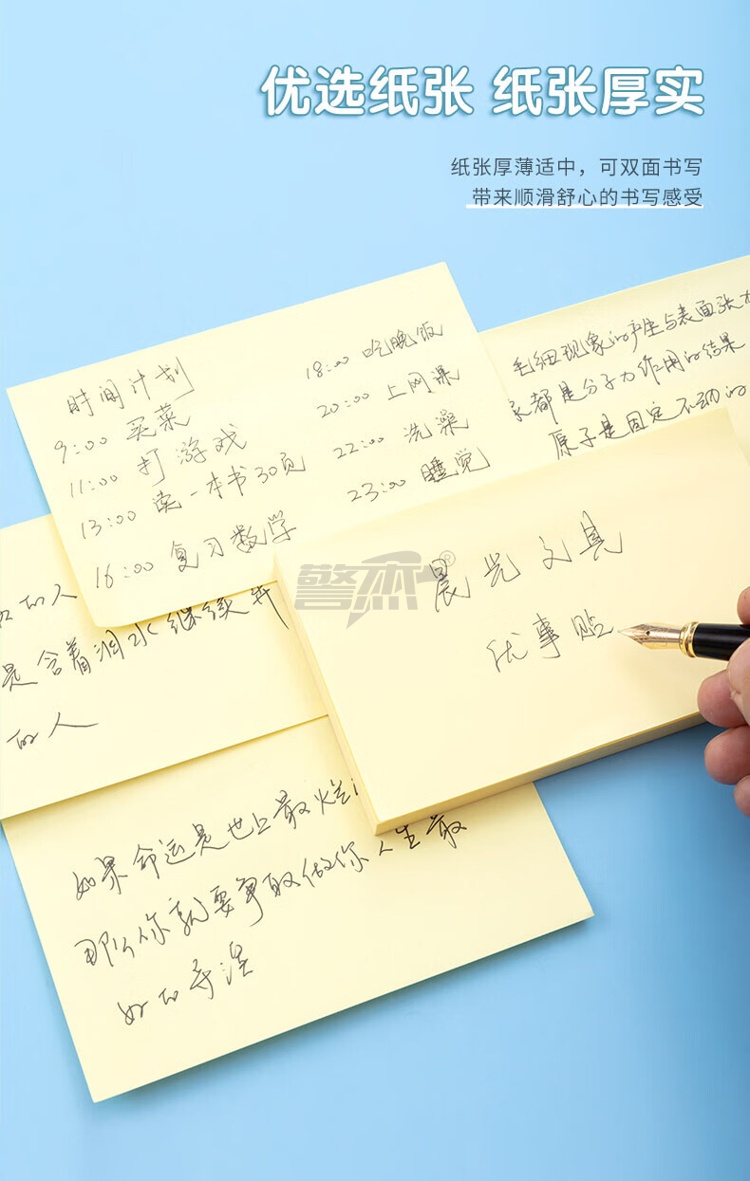 优选纸张 纸张厚实
纸张厚薄适中，可双面书写
带来顺滑舒心的书写感受
时间计划
9:00 买菜
11:00 打游戏
13:00 读一本书30页
16:00 复习数学
18:00 吃晚饭
20:00 上网课
22:00 洗澡
23:00 睡觉
毛细现象的产生与表面张
都是分子力作用的结果
原子是固定不动的
警杰®
晨光文具
优事贴
的人
是含着泪水继续奔
的人
如果命运是世上最
那么你就要争取做你人生最
好的导演